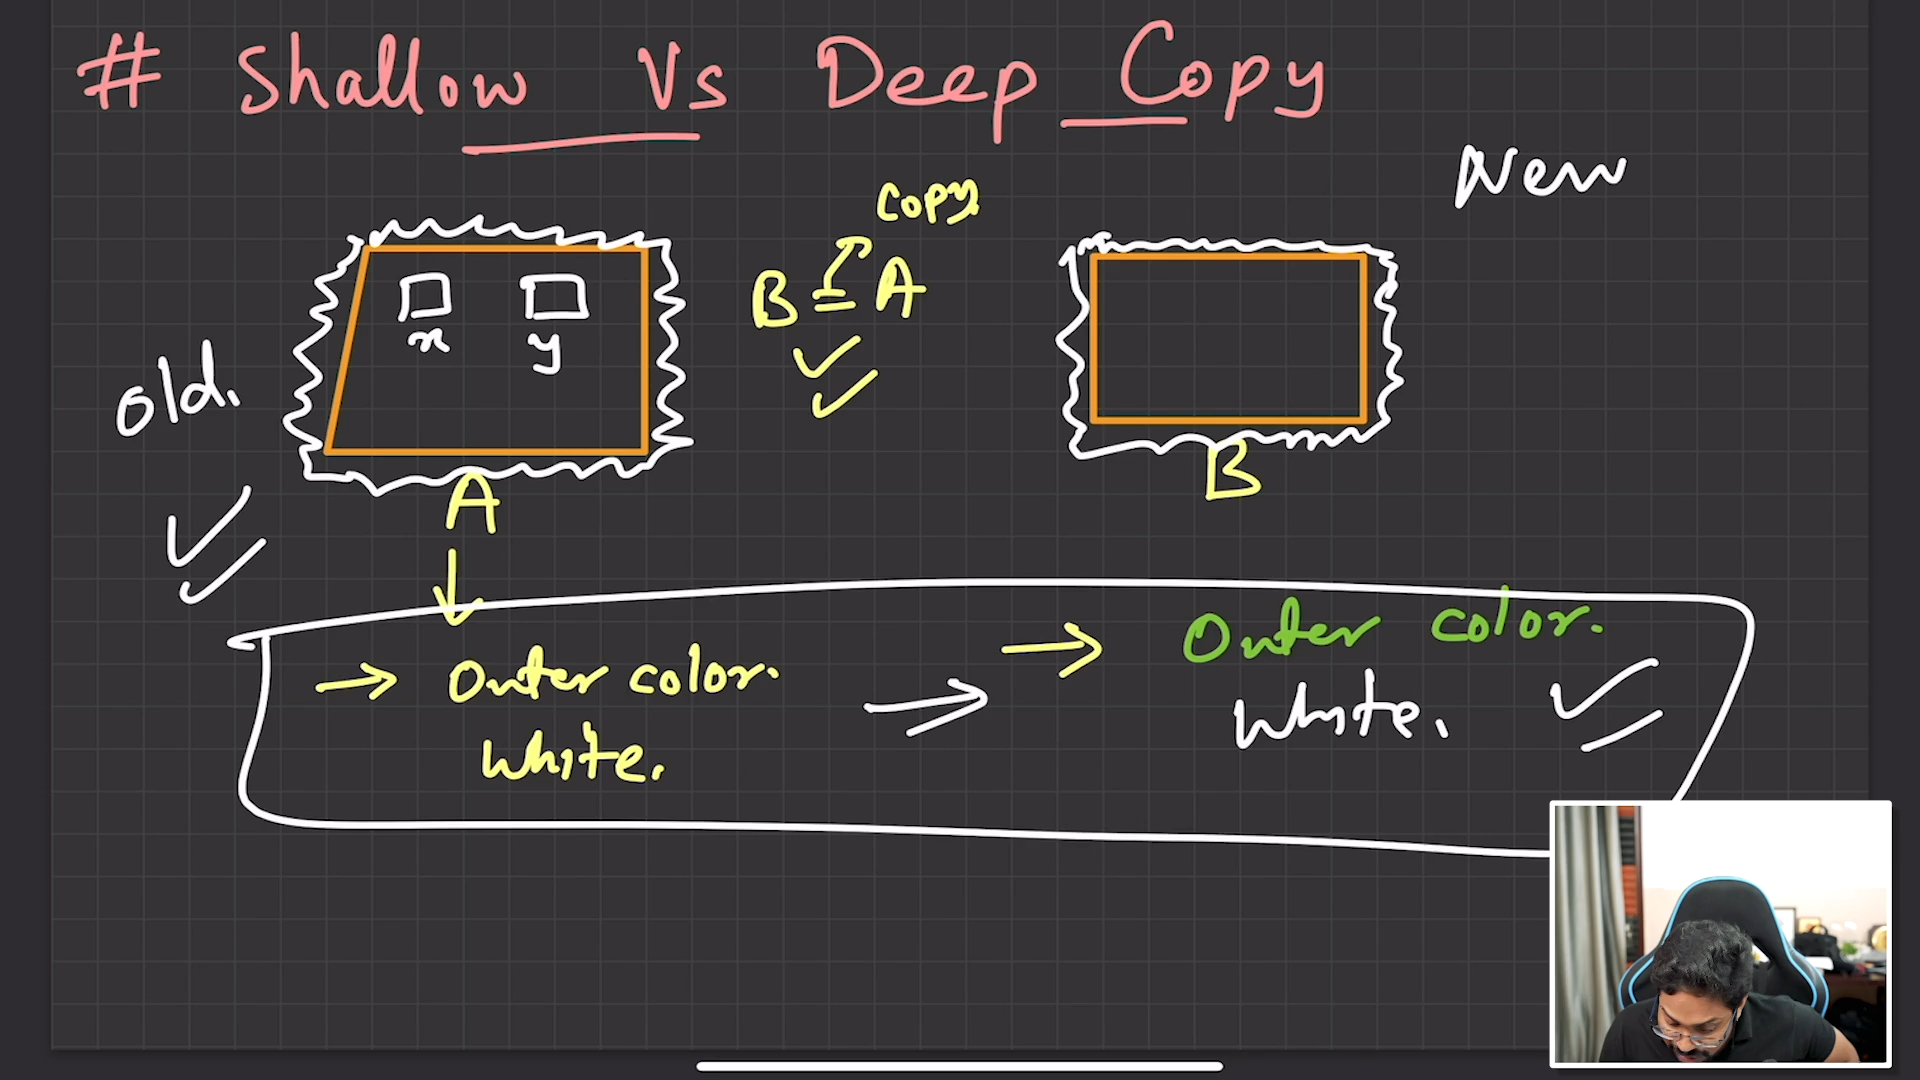 # Shallow Vs Deep Copy
New
Copy
B = A
x y
old.
A
B
→ Outer color.
White.
→ Outer color.
White.